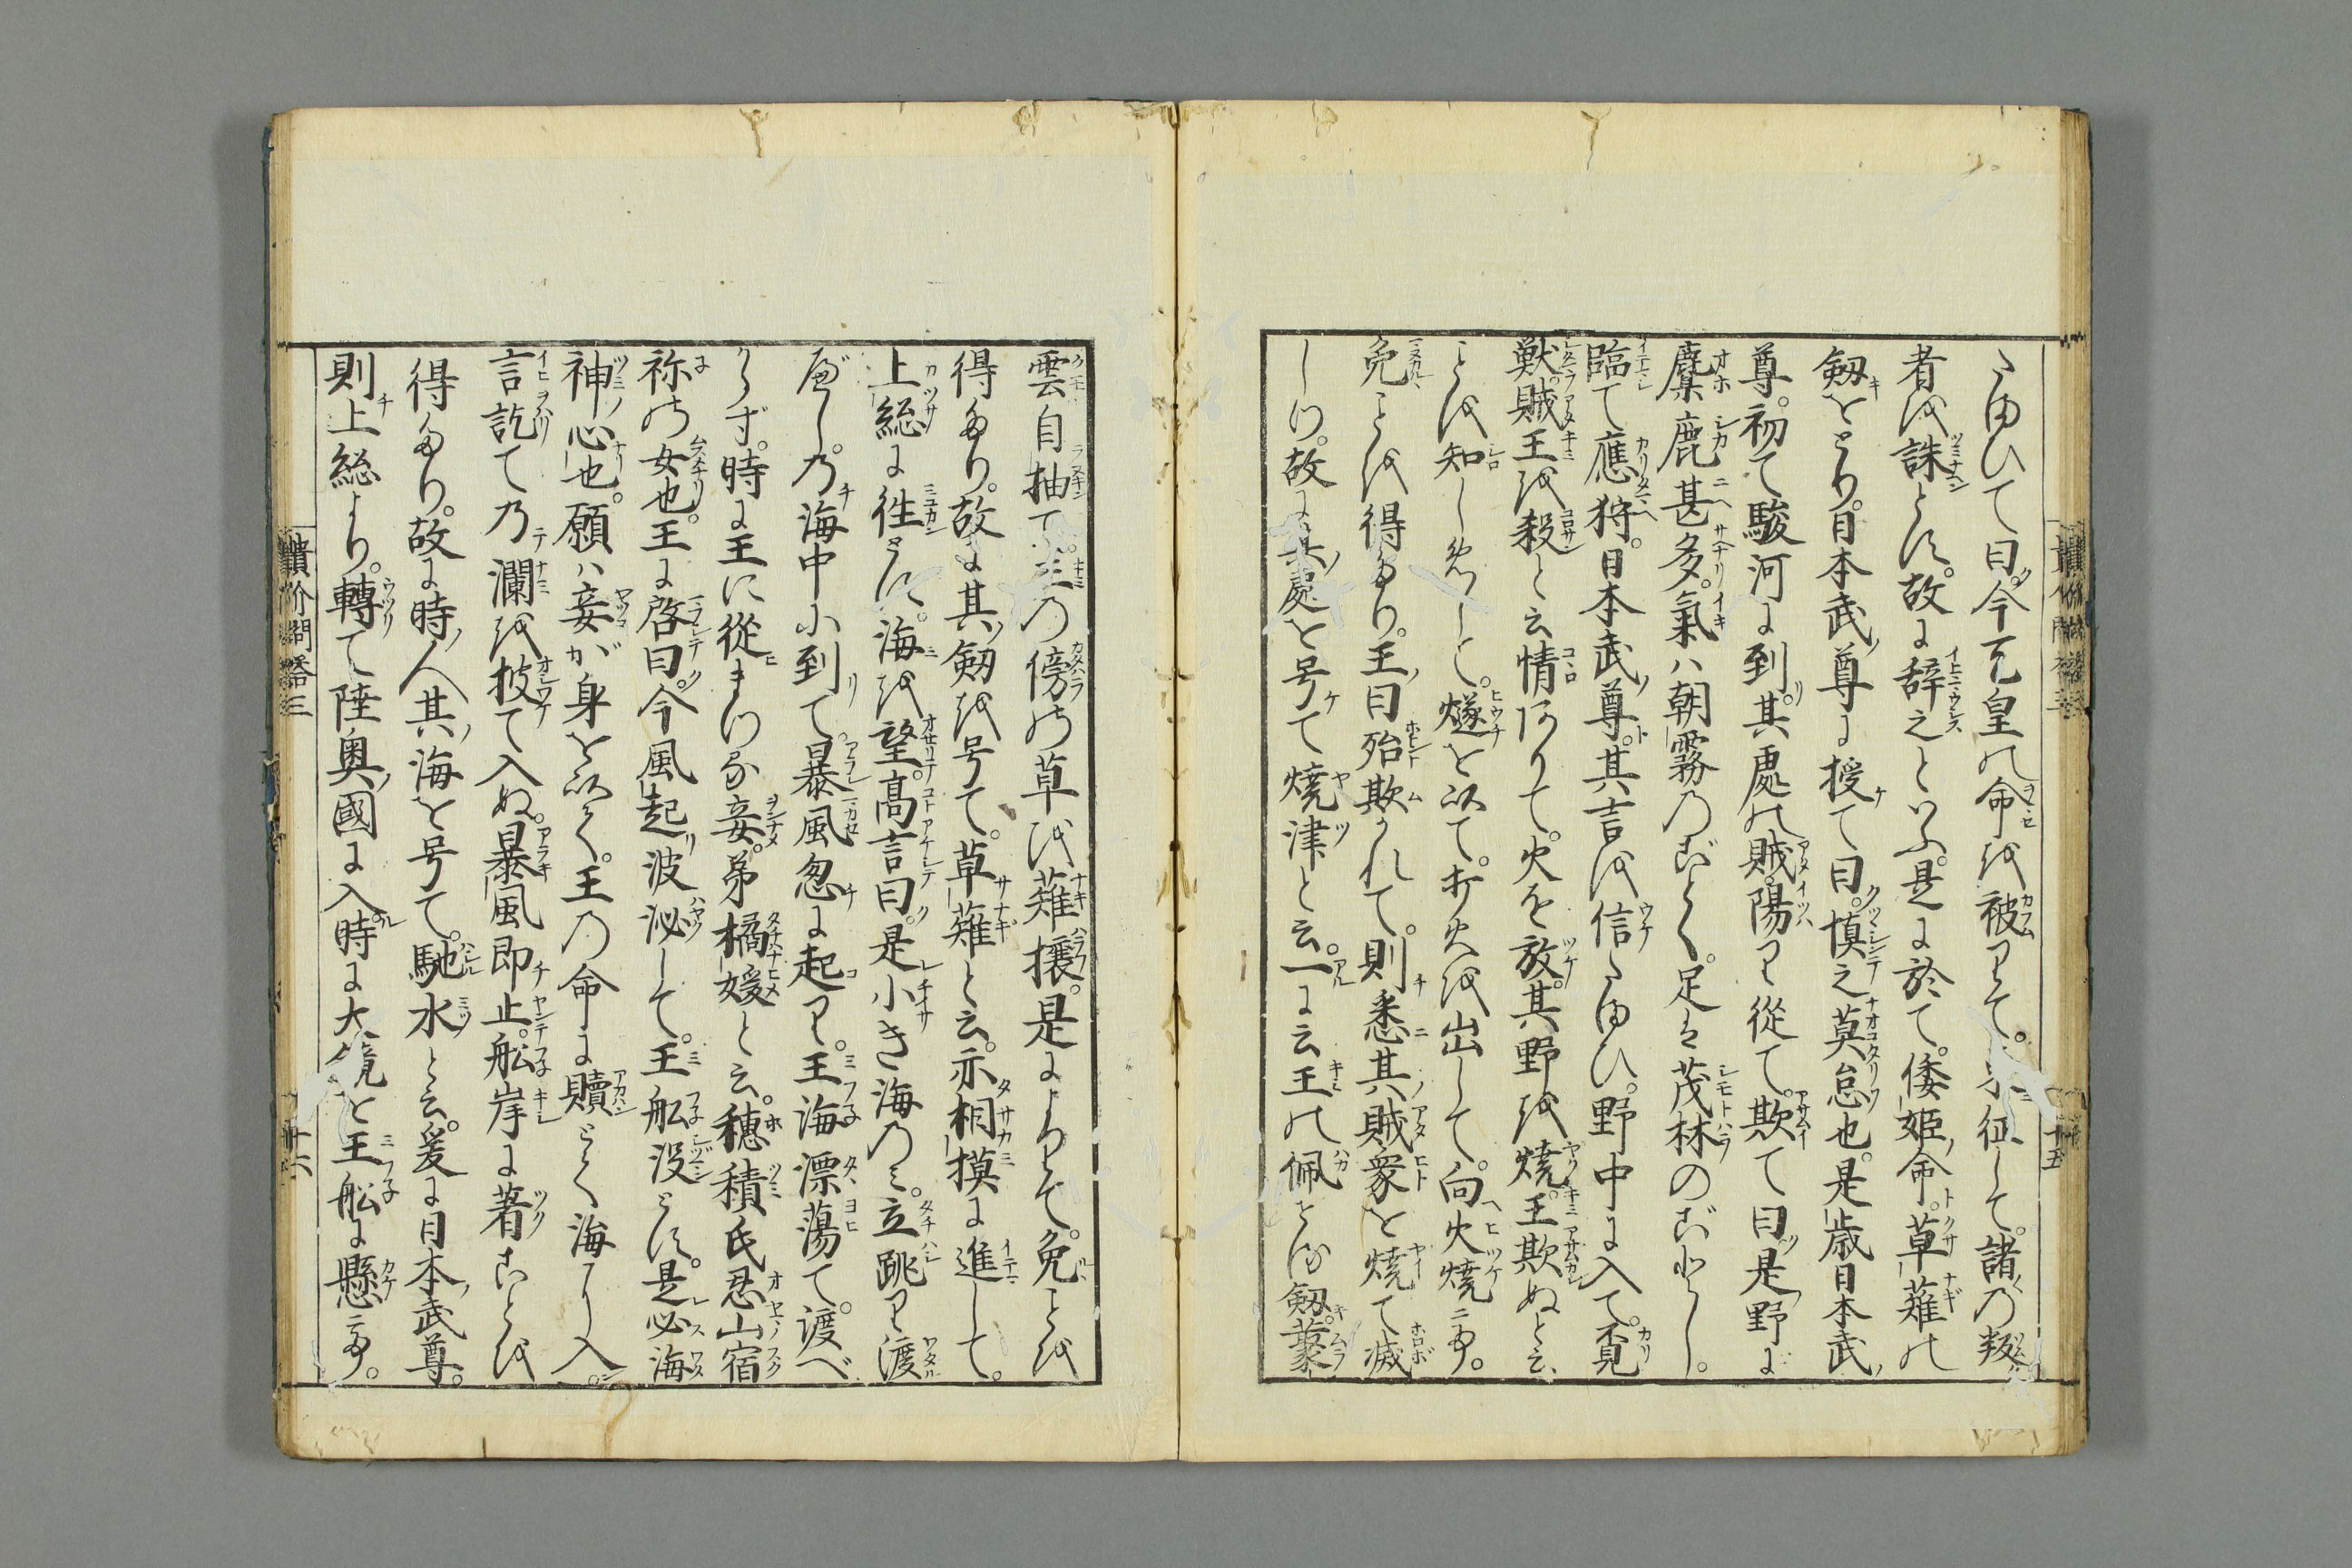 たまひて曰今天皇の命を被りて東征して諸の叛
者を誅とす故に辞之といふ是に於て倭姫命草薙の
剱をとり日本武尊に授て曰慎之莫怠也是歳日本武
尊初て駿河に到其處の賊陽り従て欺て曰是野に
麋鹿甚多氣ハ朝霧のごとく足は茂林のごとし
臨て應狩日本武尊其言を信たまひ野中に入て覓
獣賊王を殺と云情ありて火を放其野を焼王欺ぬと云
ことを知しめして燧を以て打火を出して向火焼ニ而
免ことを得たり王曰殆欺かれて則悉其賊衆を焼て滅
しつ故に其處を号て焼津と云一に云王の佩せる剱藂
雲自抽て王の傍の草を薙攘是によりて免ことを
得たり故に其剱を号て草薙と云亦相摸に進して
上総に往とす海を望高言曰是小き海のミ立跳り渡
べし乃海中に到て暴風忽に起り王海漂蕩て渡べ
からず時に王に從まつる妾弟橘媛と云穂積氏忍山宿
祢の女也王に啓曰今風起波泌して王舩没とす是必海
神心也願ハ妾が身を以て王の命に贖とて海に入
言訖て乃瀾を披て入ぬ暴風即止舩岸に著ことを
得たり故に時人其海を号て馳水と云爰に日本武尊
則上総より轉て陸奥國に入時に大鏡を王舩に懸而